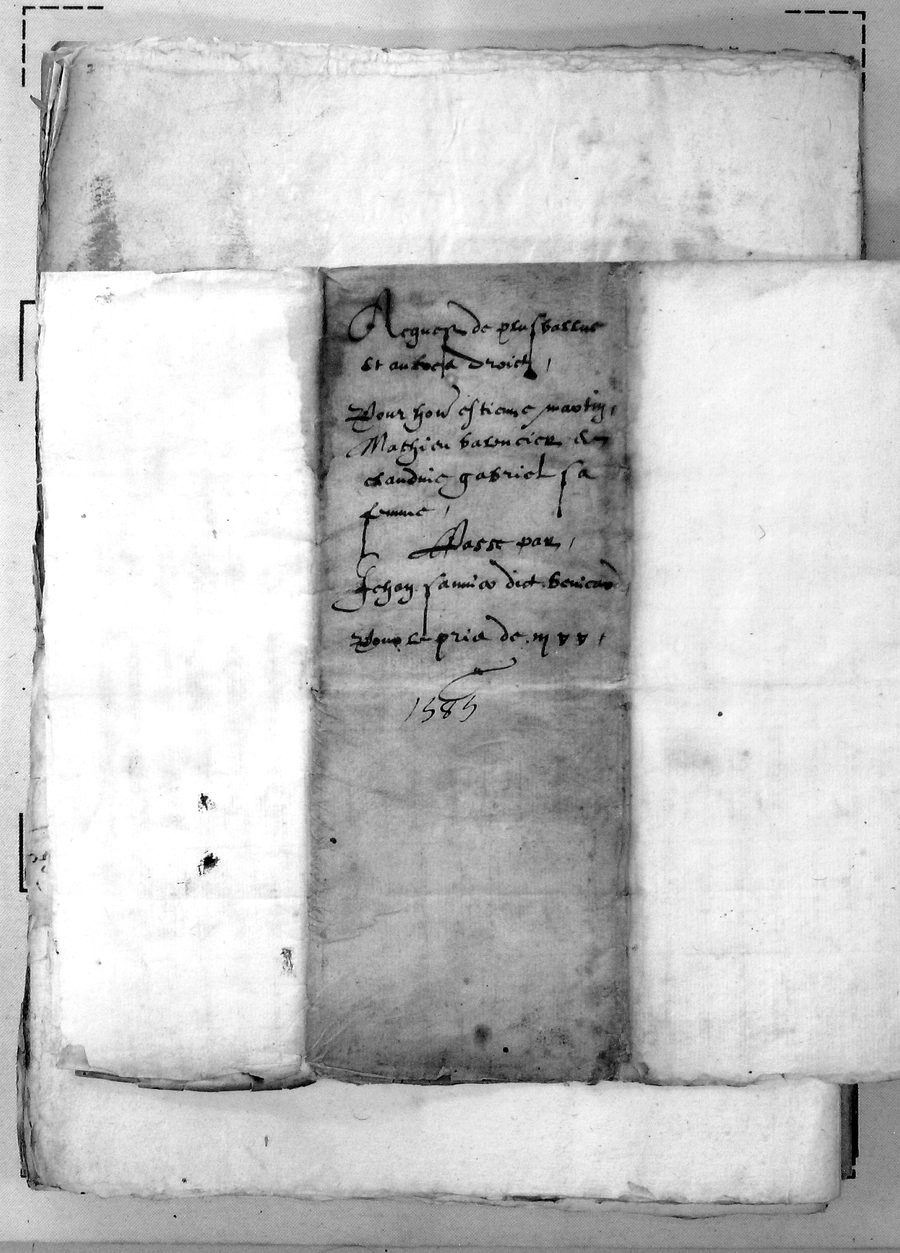 Acquest de plusvallue
et aultres droictz,
Pour hon estienne martin,
Mathieu Valencier et
claudine gabriel sa
femme,
Passe par,
Jehan dict
Pour le pris de
1585